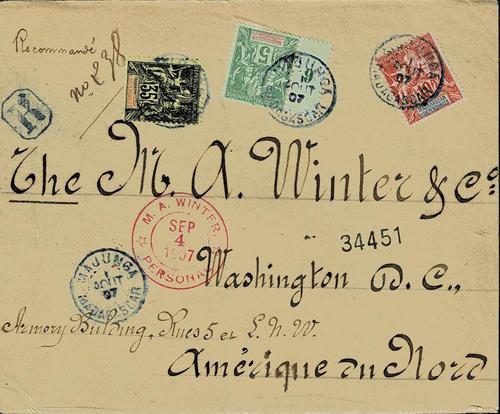 Recommandé
no 238
R
35
5
10
MAJUNGA
AOUT
07
MADAGASCAR
MAJUNGA
07
MADAGASCAR
The M. A. Winter & Co
M. A. WINTER.
SEP
4
1907
PERSONAL
34451
MAJUNGA
1
AOUT
07
MADAGASCAR
Washington D. C.,
Armory Building, Rues 5 et L. N. W.
Amérique du Nord